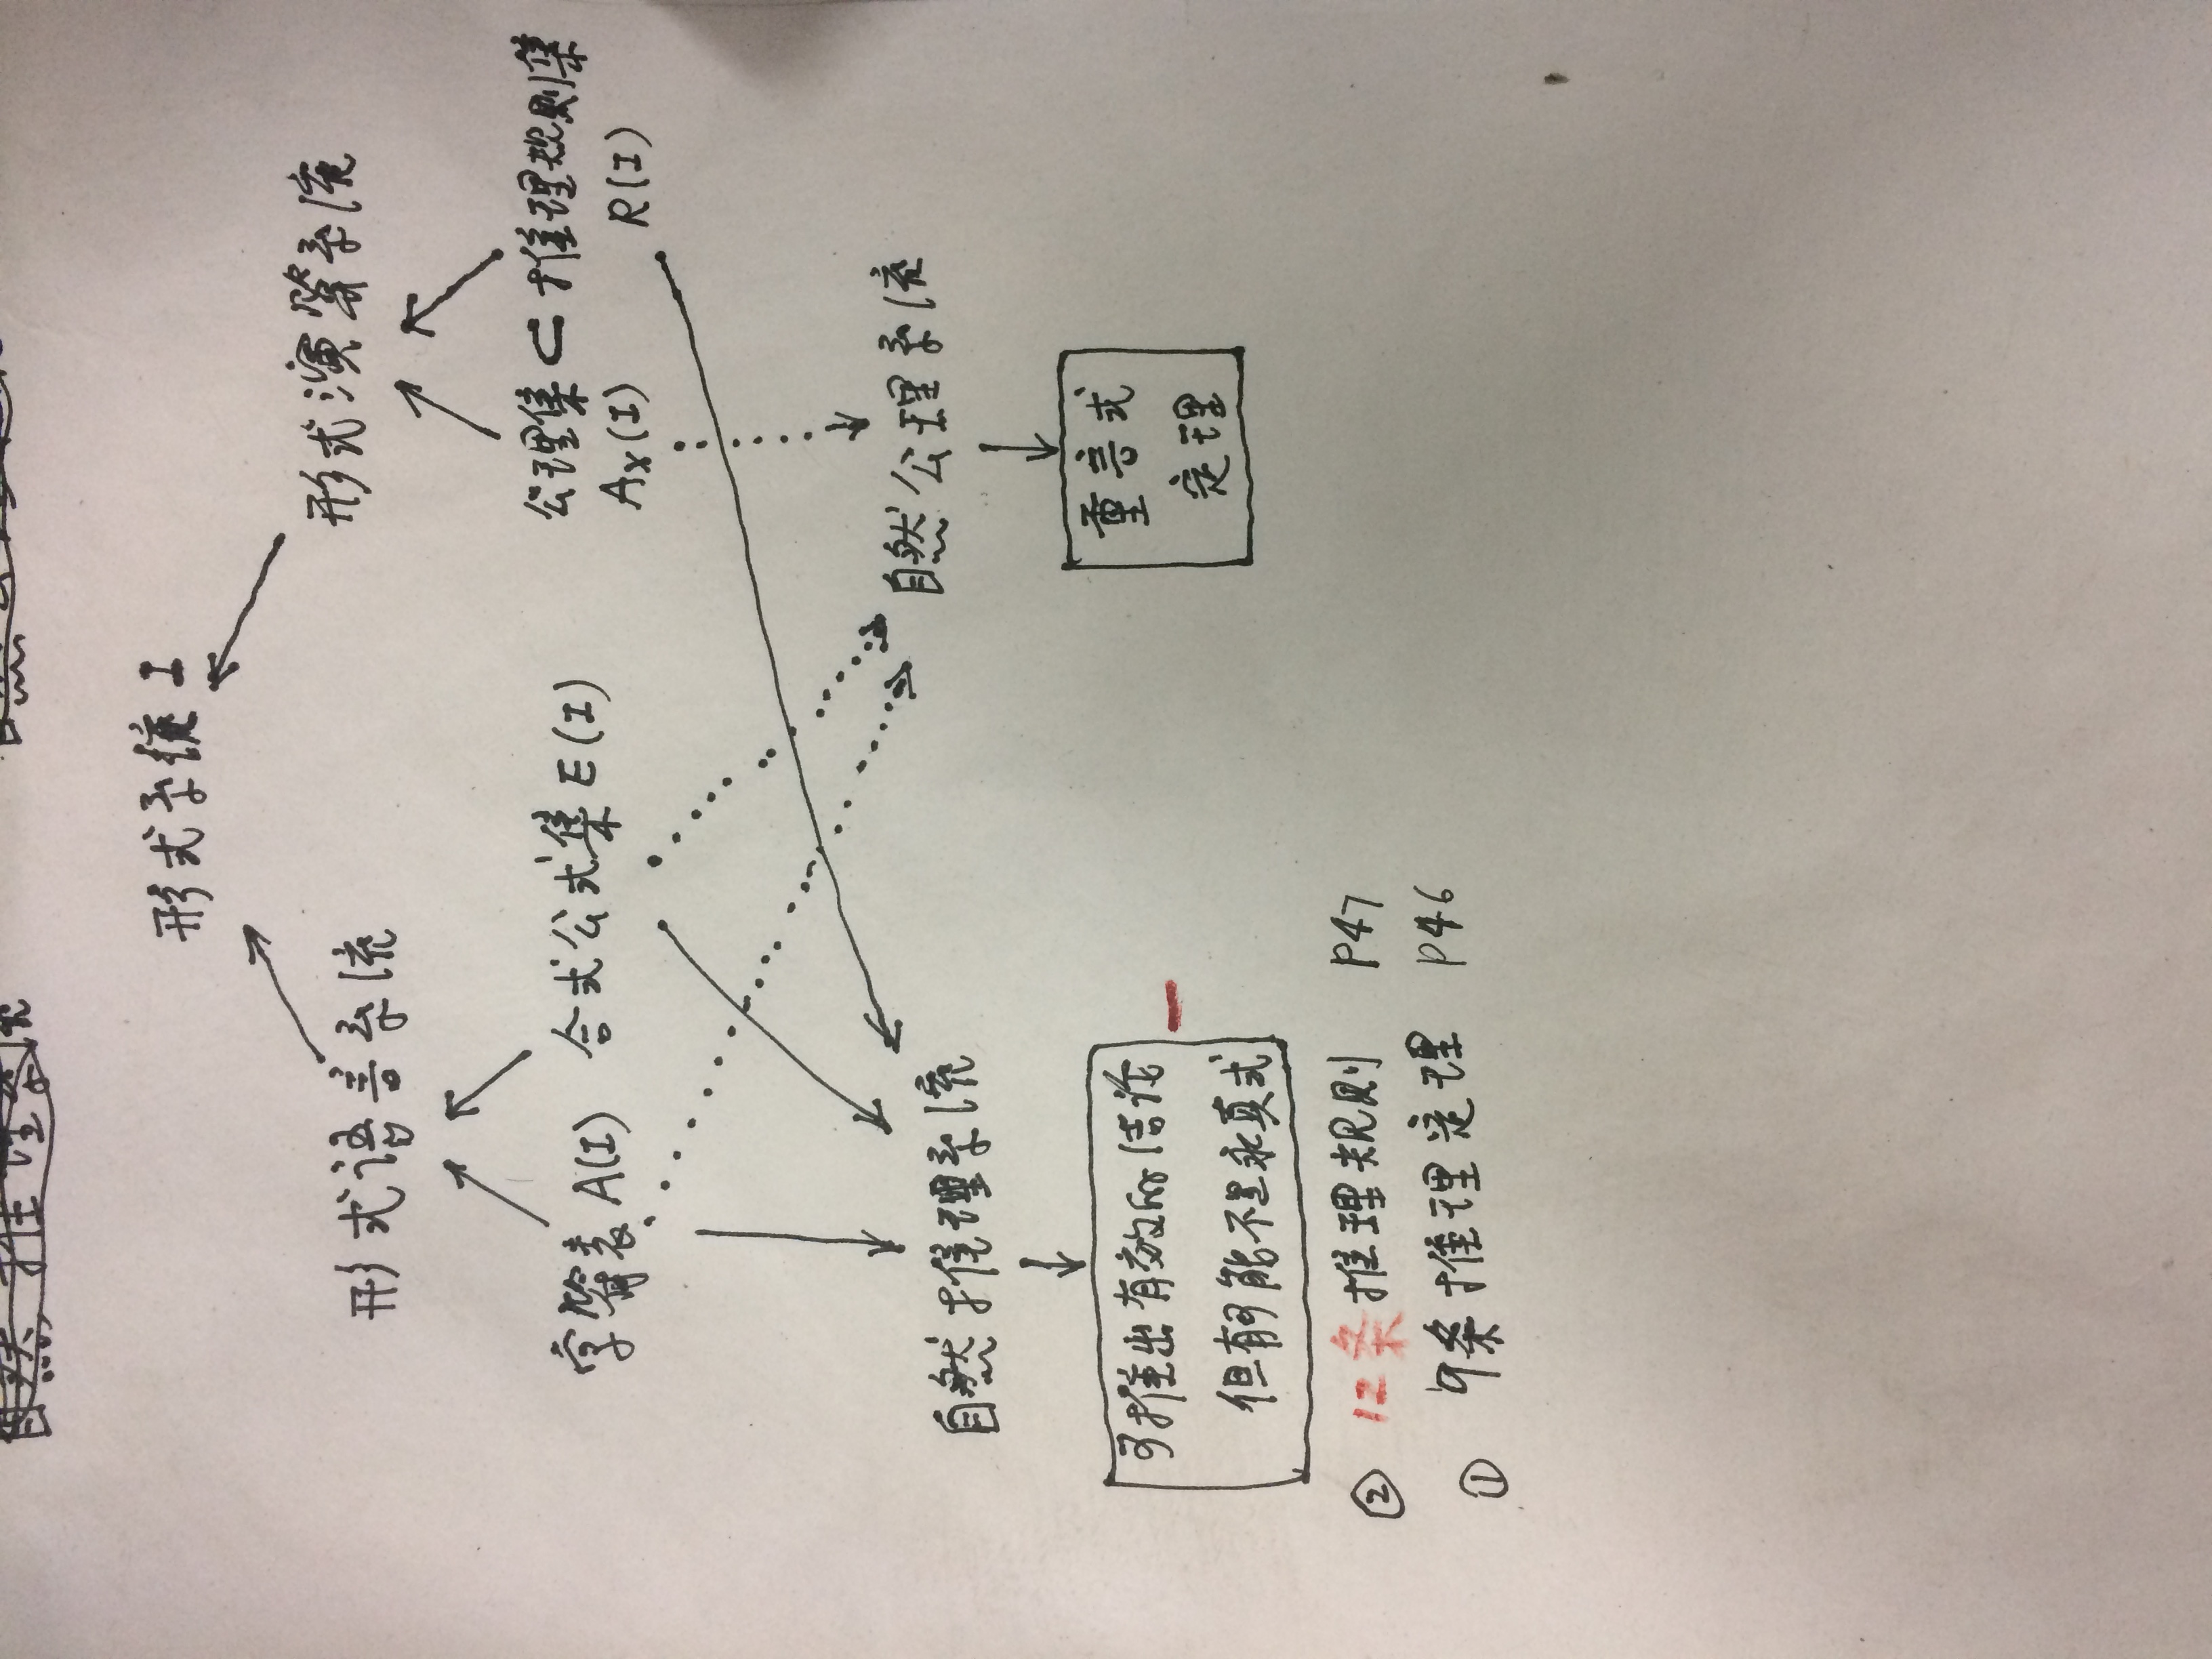 形式系统 I
形式语言系统
形式演算系统
字符表 A(I)
合式公式集 E(I)
公理集 ⊂ 推理规则集
Ax(I)
R(I)
自然推理系统
自然公理系统
可推出有效的结论
但有可能不是永真式
重言式
定理
② 12条 推理规则 P47
① 9条 推理定理 P46